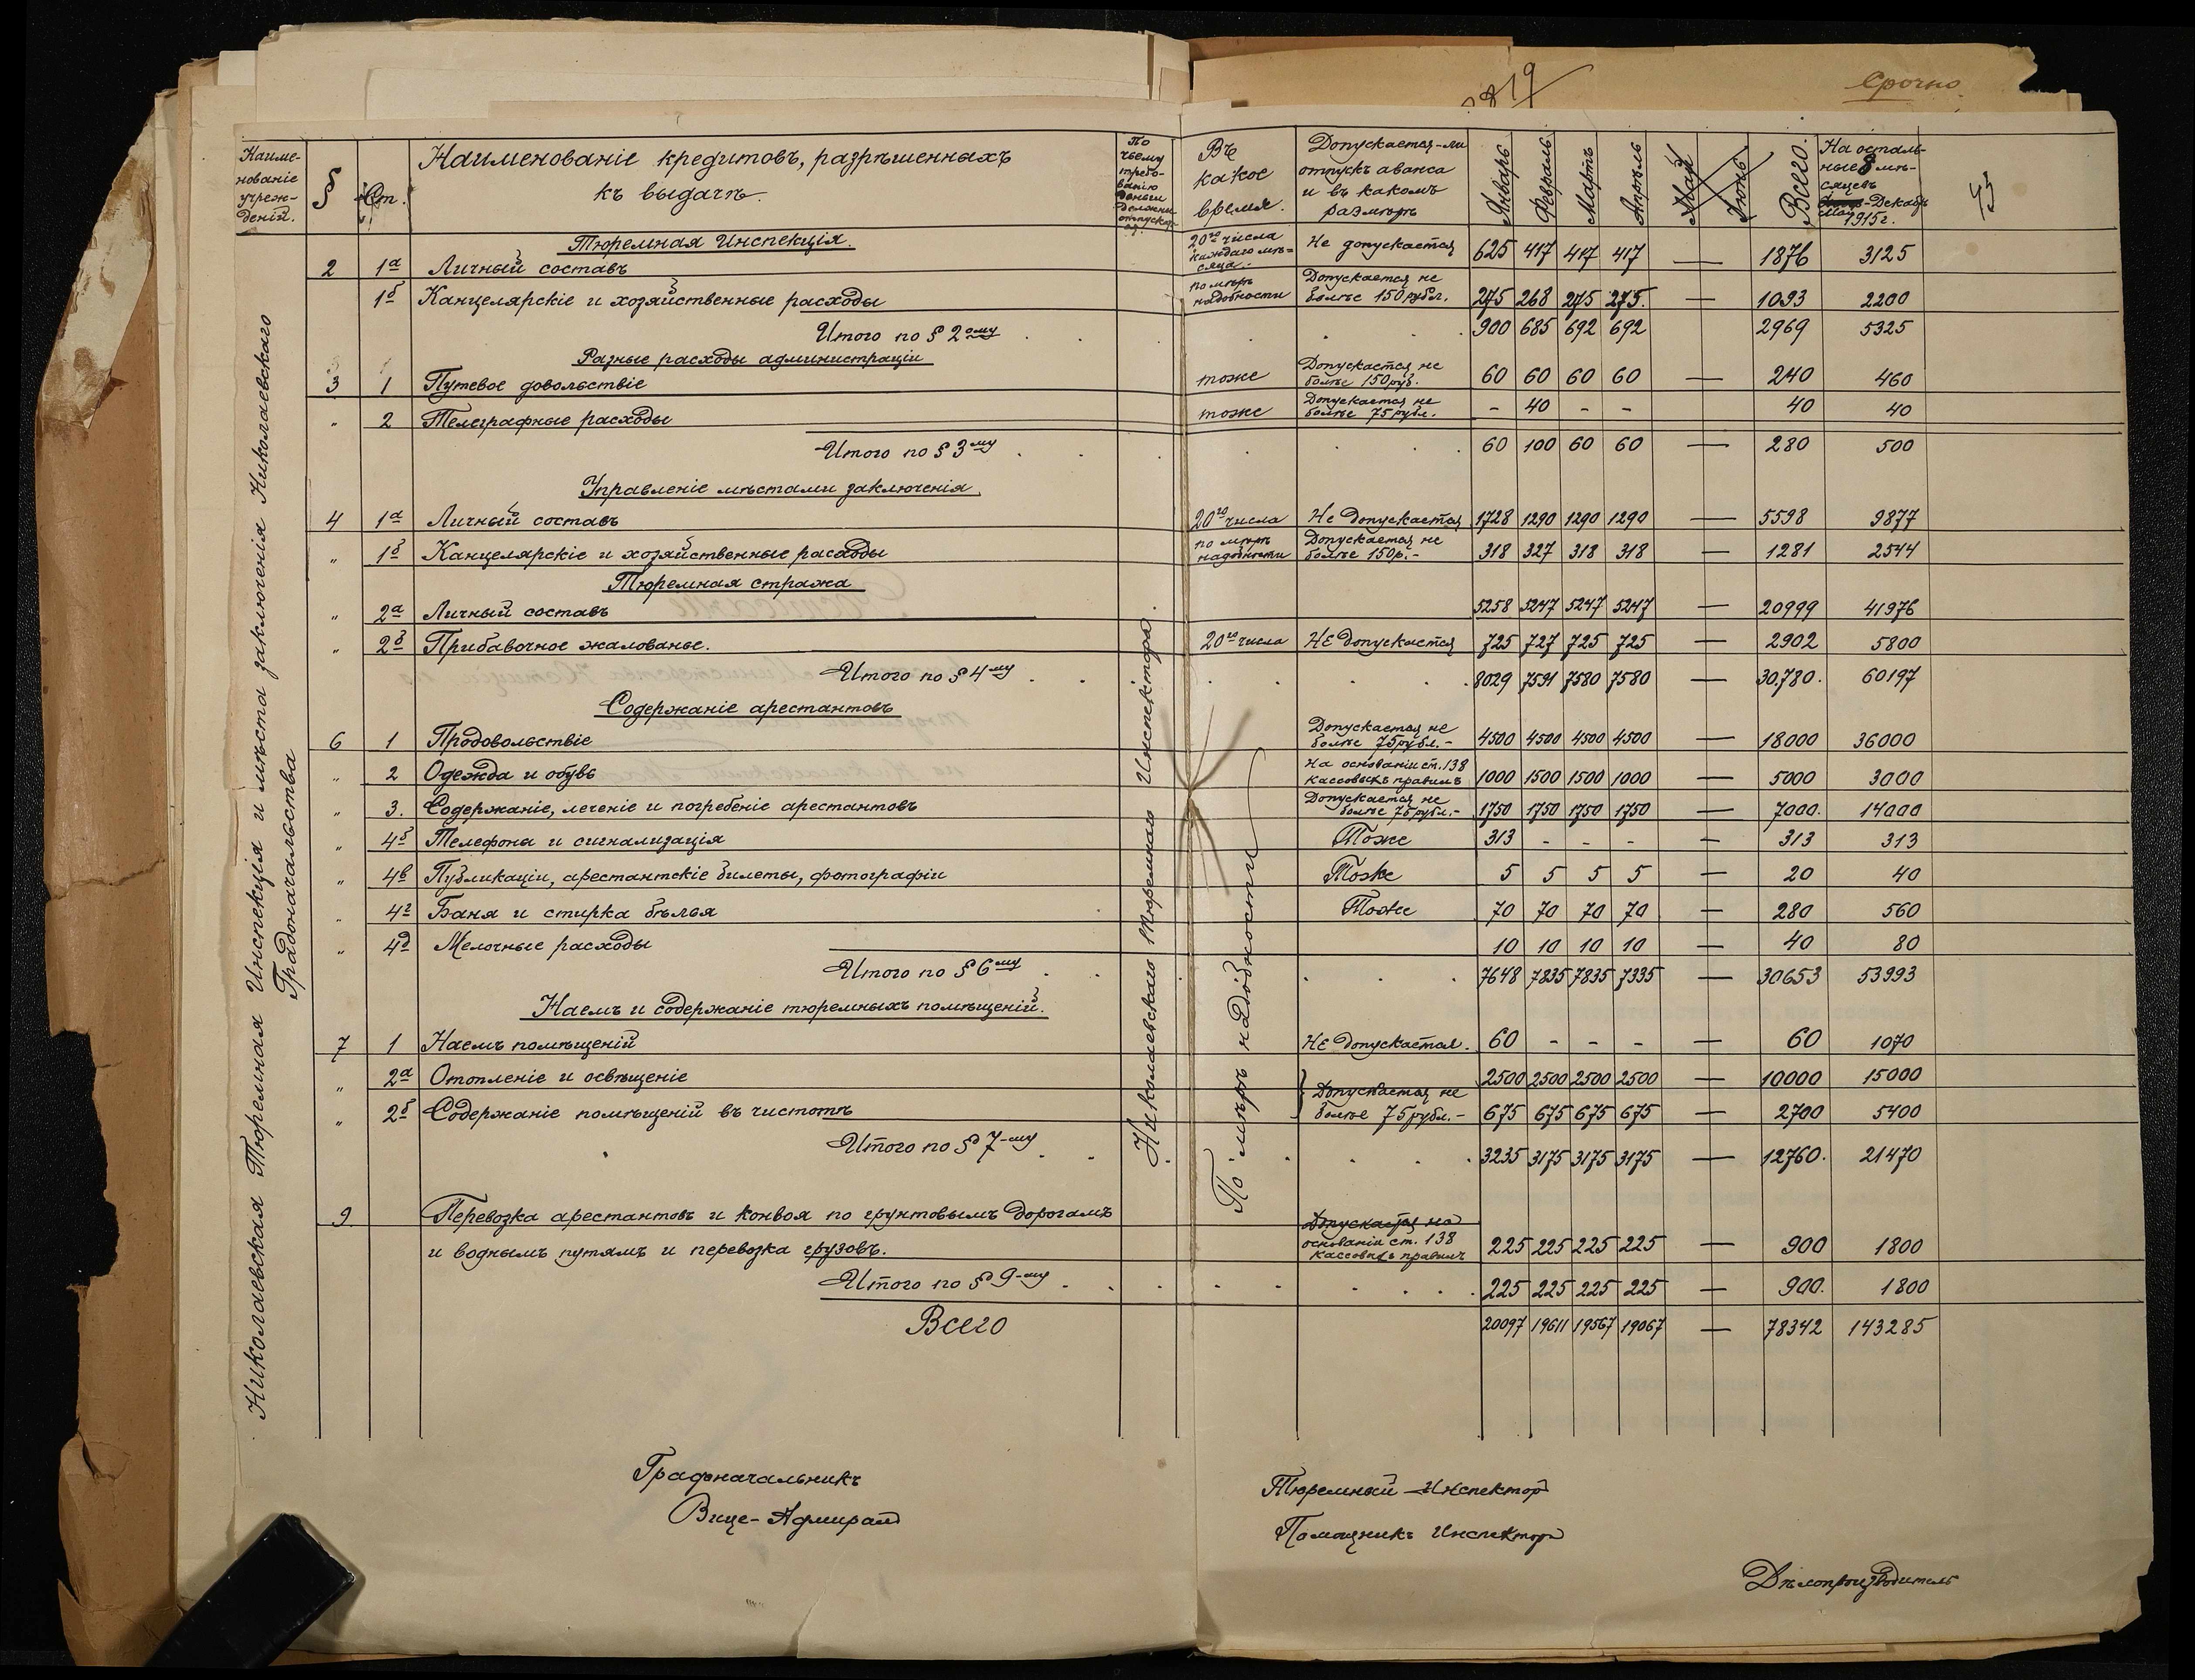 Срочно
Наиме-
нованіе
учреж-
деній.
§
Ст.
Наименованіе кредитовъ, разрѣшенныхъ
къ выдачѣ.
По
чьему
требо-
ванію
деньги
должны
отпускат-
Въ
какое
время.
Допускается-ли
отпускъ аванса
и въ какомъ
размѣрѣ
Январь
Февраль
Мартъ
Апрѣль
Май
Іюнь
Всего.
На осталь-
ные 8 мѣ-
сяцевъ
Май-Декабрь
1915 г.
Николаевская Тюремная Инспекція и мѣста заключенія Николаевскаго
Градоначальства
Николаевскаго Тюремнаго Инспектора.
По мѣрѣ надобности
Тюремная Инспекція.
2 1а Личный составъ 20го числа каждаго мѣ-сяца.- Не допускается 625 417 417 417 — 1876 3125
1б Канцелярскіе и хозяйственные расходы по мѣрѣ надобности Допускается не болѣе 150 рубл. 275 268 275 275. — 1093 2200
Итого по § 2ому . . . . . 900 685 692 692 2969 5325
Разные расходы администраціи
3 1 Путевое довольствіе тоже Допускается не болѣе 150 руб. 60 60 60 60 — 240 460
" 2 Телеграфные расходы тоже Допускается не болѣе 75 рубл. - 40 - - 40 40
Итого по § 3му . . . . . 60 100 60 60 — 280 500
Управленіе мѣстами заключенія.
4 1а Личный составъ 20го числа Не допускается 1728 1290 1290 1290 — 5598 9877
" 1б Канцелярскіе и хозяйственные расходы по мѣрѣ надобности Допускается не болѣе 150 р.- 318 327 318 318 — 1281 2544
Тюремная стража
" 2а Личный составъ 5258 5247 5247 5247 — 20999 41976
" 2б Прибавочное жалованье. 20го числа Не допускается 725 727 725 725 — 2902 5800
Итого по § 4му . . . . . 8029 7591 7580 7580 — 30,780. 60197
Содержаніе арестантовъ
6 1 Продовольствіе Допускается не болѣе 75 рубл.- 4500 4500 4500 4500 — 18000 36000
" 2 Одежда и обувь На основаніи ст. 138 кассовыхъ правилъ 1000 1500 1500 1000 — 5000 3000
" 3. Содержаніе, леченіе и погребеніе арестантовъ Допускается не болѣе 75 рубл.- 1750 1750 1750 1750 — 7000. 14000
" 4б Телефона и сигнализація Тоже 313 - - - — 313 313
" 4в Публикаціи, арестантскіе билеты, фотографіи Тоже 5 5 5 5 — 20 40
" 4г Баня и стирка бѣлья Тоже 70 70 70 70 — 280 560
" 4д Мелочные расходы 10 10 10 10 — 40 80
Итого по § 6му . . . . . 7648 7835 7835 7335 — 30653 53993
Наемъ и содержаніе тюремныхъ помѣщеній.
7 1 Наемъ помѣщеній Не допускается. 60 - - - — 60 1070
" 2а Отопленіе и освѣщеніе 2500 2500 2500 2500 — 10000 15000
" 2б Содержаніе помѣщеній въ чистотѣ Допускается не болѣе 75 рубл.- 675 675 675 675 — 2700 5400
Итого по § 7-му . . . . . 3235 3175 3175 3175 — 12760. 21470
9 Перевозка арестантовъ и конвоя по грунтовымъ дорогамъ
и воднымъ путямъ и перевозка грузовъ. Допускается на основаніи ст. 138 кассовыхъ правилъ 225 225 225 225 — 900 1800
Итого по § 9-му . . . . . 225 225 225 225 — 900. 1800
Всего 20097 19611 19567 19067 — 78342 143285
Градоначальникъ
Вице-Адмиралъ
Тюремный Инспектор
Помощникъ Инспектора
Дѣлопроизводитель